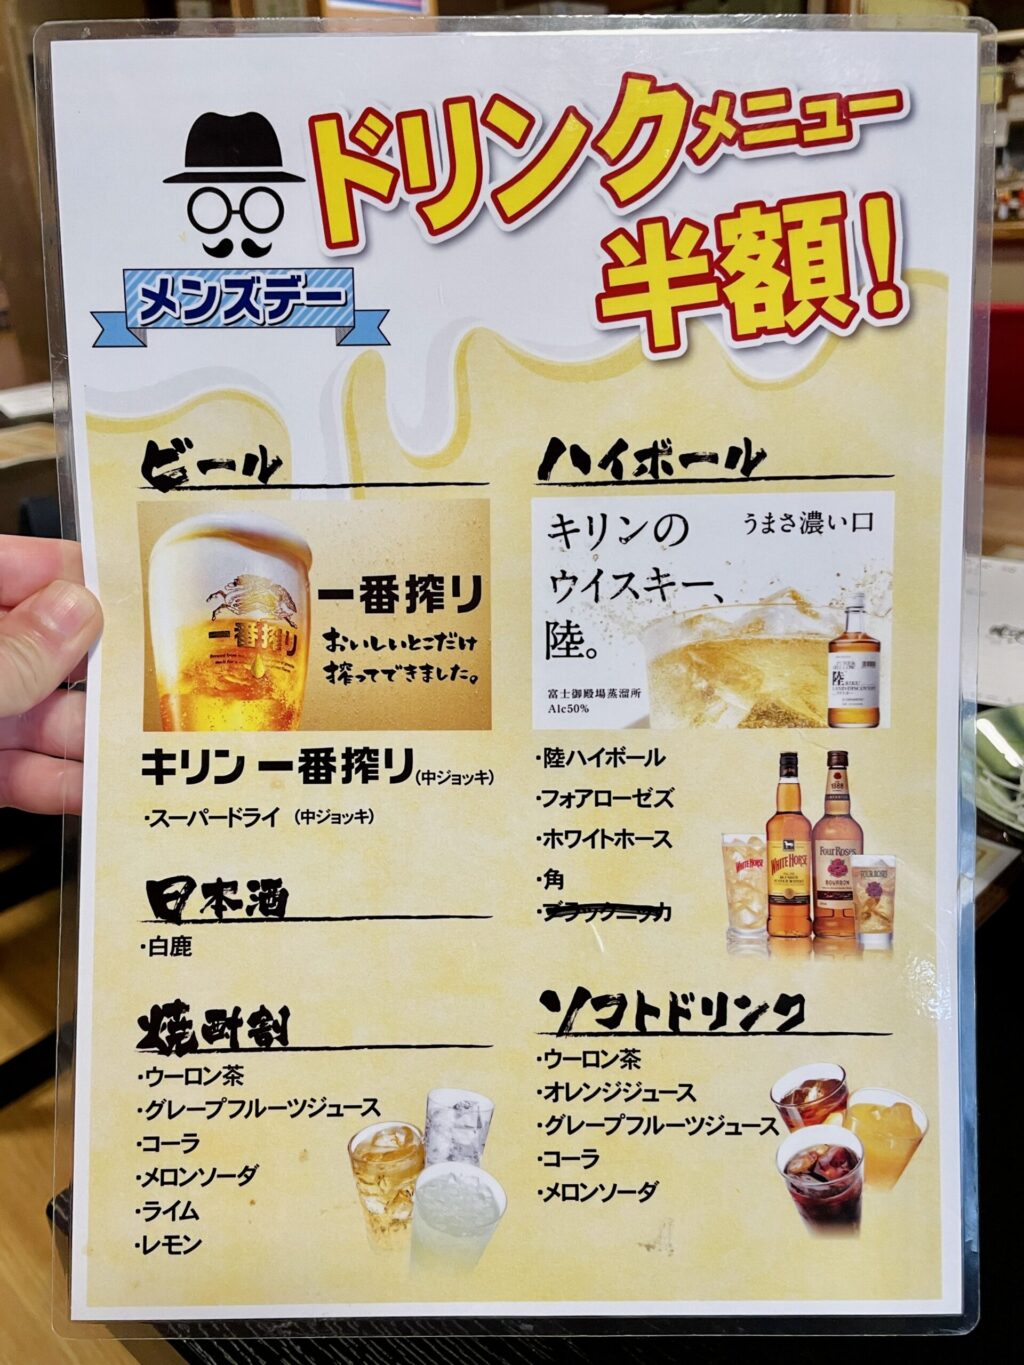 ドリンクメニュー
半額!
メンズデー
ビール
一番搾り
一番搾り
おいしいとこだけ
搾ってできました。
キリン 一番搾り(中ジョッキ)
・スーパードライ (中ジョッキ)
日本酒
・白鹿
焼酎割
・ウーロン茶
・グレープフルーツジュース
・コーラ
・メロンソーダ
・ライム
・レモン
ハイボール
キリンの
うまさ濃い口
ウイスキー、
陸。
富士御殿場蒸溜所
Alc50%
陸
・陸ハイボール
・フォアローゼズ
・ホワイトホース
・角
・ブラックニッカ
WHITE HORSE
WHITE HORSE
Four Roses
BOURBON
FOUR ROSES
ソフトドリンク
・ウーロン茶
・オレンジジュース
・グレープフルーツジュース
・コーラ
・メロンソーダ